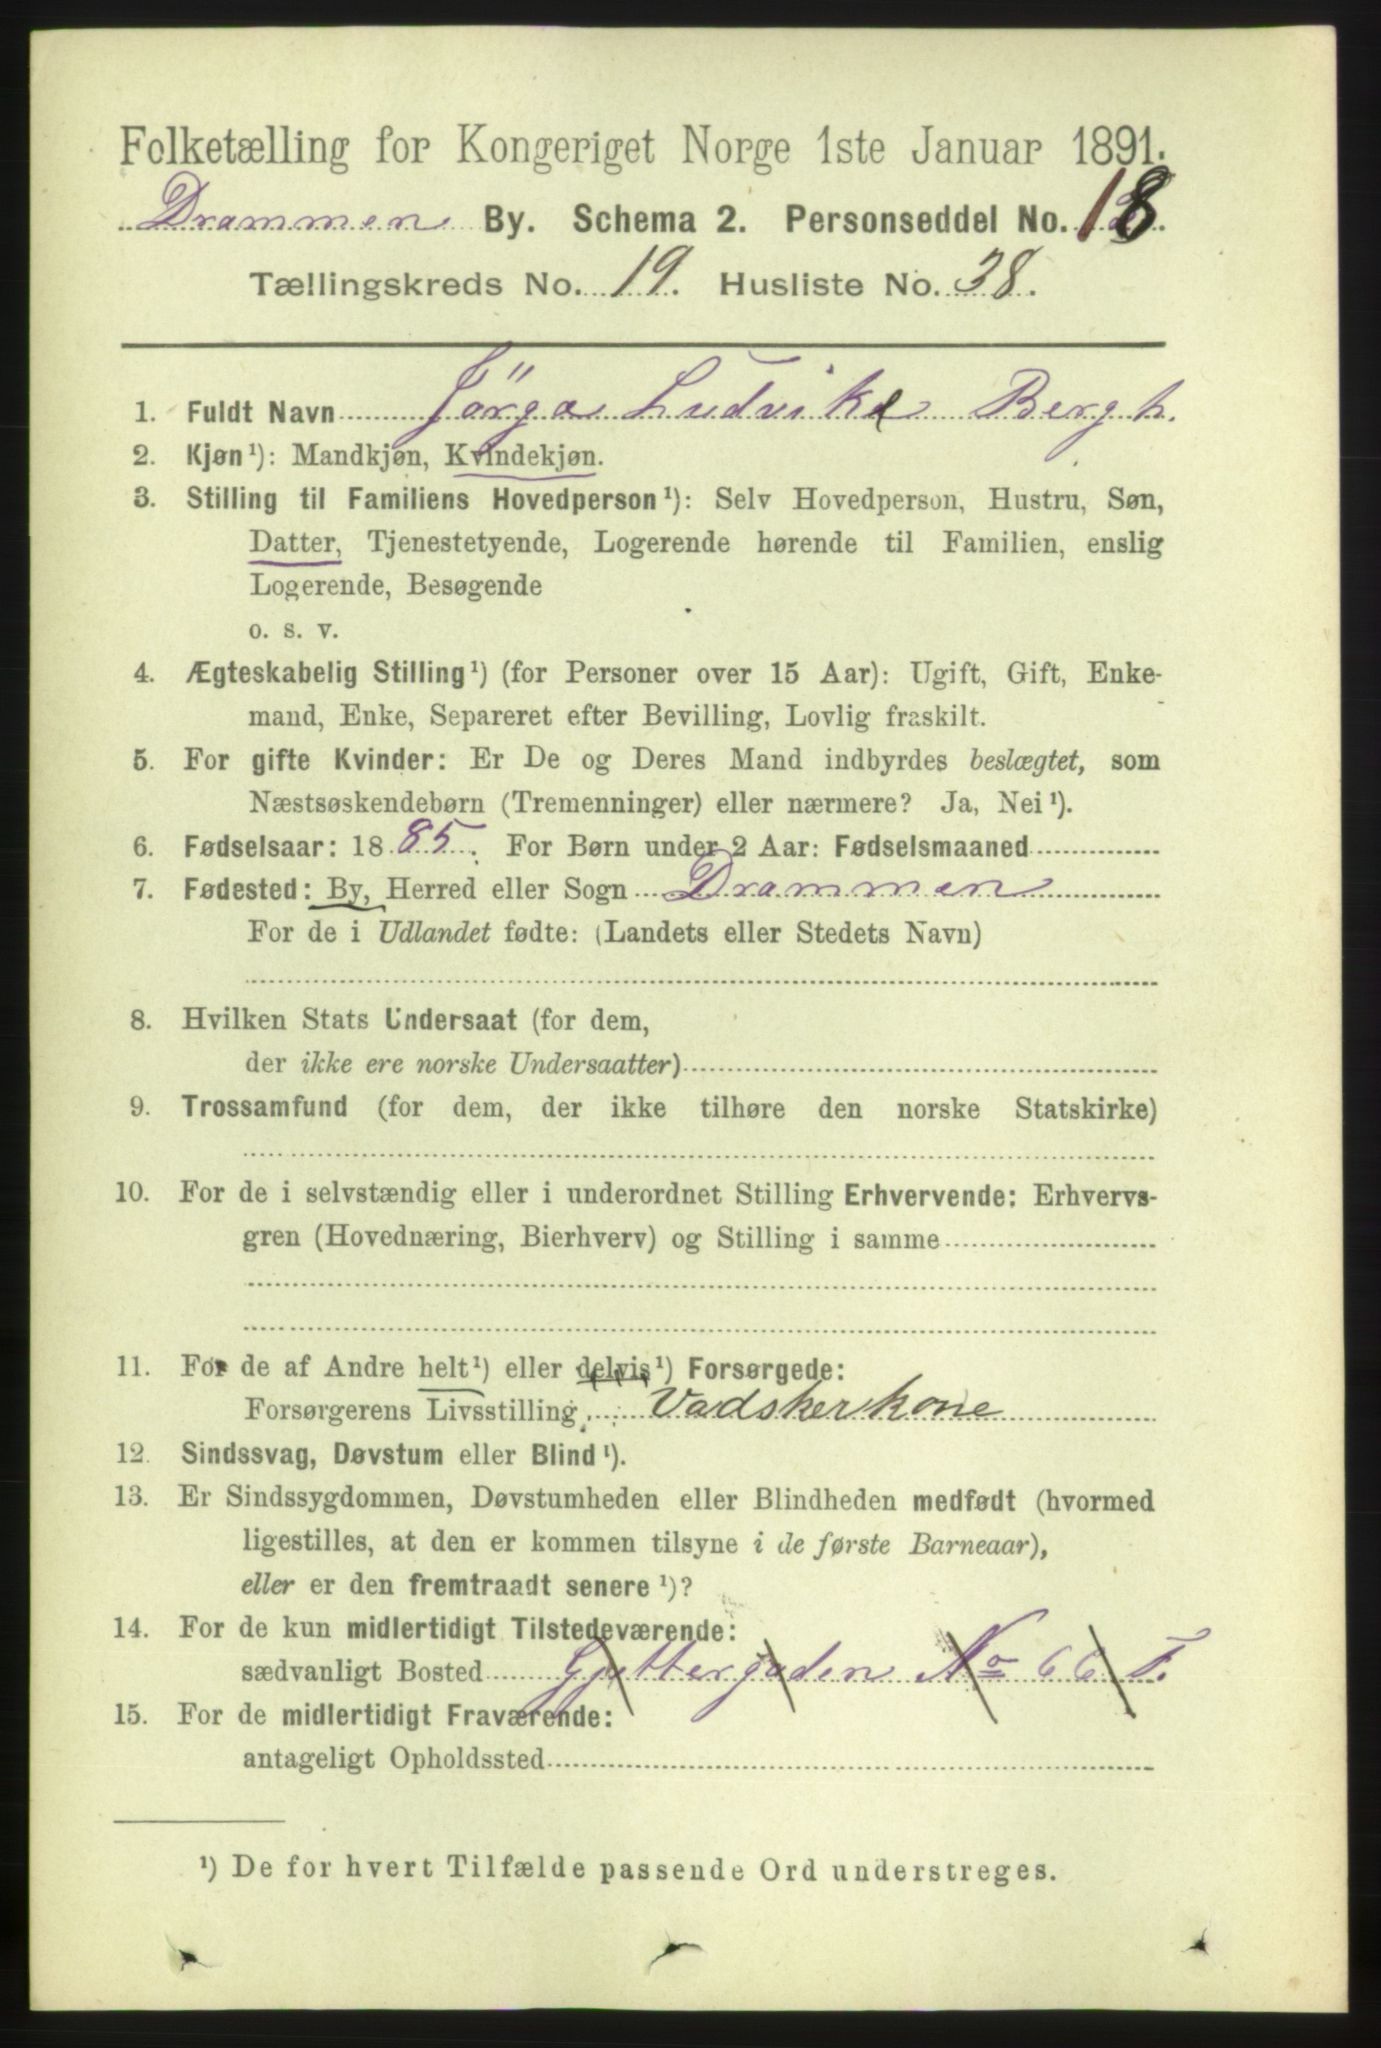 Folketælling for Kongeriget Norge 1ste Januar 1891.
Drammen By. Schema 2. Personseddel No. 18.
Tællingskreds No. 19. Husliste No. 38.
1. Fuldt Navn Ludvike Bergh.
2. Kjøn¹): Mandkjøn, Kvindekjøn.
3. Stilling til Familiens Hovedperson¹): Selv Hovedperson, Hustru, Søn,
Datter, Tjenestetyende, Logerende hørende til Familien, enslig
Logerende, Besøgende
o. s. v.
4. Ægteskabelig Stilling¹) (for Personer over 15 Aar): Ugift, Gift, Enke-
mand, Enke, Separeret efter Bevilling, Lovlig fraskilt.
5. For gifte Kvinder: Er De og Deres Mand indbyrdes beslægtet, som
Næstsøskendebørn (Tremenninger) eller nærmere? Ja, Nei¹).
6. Fødselsaar: 1885. For Børn under 2 Aar: Fødselsmaaned
7. Fødested: By, Herred eller Sogn Drammen
For de i Udlandet fødte: (Landets eller Stedets Navn)
8. Hvilken Stats Undersaat (for dem,
der ikke ere norske Undersaatter)
9. Trossamfund (for dem, der ikke tilhøre den norske Statskirke)
10. For de i selvstændig eller i underordnet Stilling Erhvervende: Erhvervs-
gren (Hovednæring, Bierhverv) og Stilling i samme
11. For de af Andre helt¹) eller delvis¹) Forsørgede:
Forsørgerens Livsstilling Vadskerkone
12. Sindssvag, Døvstum eller Blind¹).
13. Er Sindssygdommen, Døvstumheden eller Blindheden medfødt (hvormed
ligestilles, at den er kommen tilsyne i de første Barneaar),
eller er den fremtraadt senere¹)?
14. For de kun midlertidigt Tilstedeværende:
sædvanligt Bosted No 66 F.
15. For de midlertidigt Fraværende:
antageligt Opholdssted
¹) De for hvert Tilfælde passende Ord understreges.